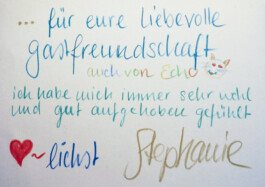 ... für eure liebevolle
gastfreundschaft
auch von Echo
ich habe mich immer sehr wohl
und gut aufgehoben gefühlt
~ lichst
Stephanie